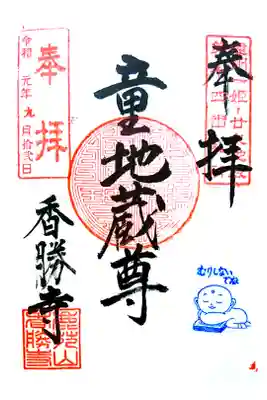 奉拝
童地蔵尊
香勝寺
奉拝
令和元年九月拾弐日
むりしない
でね